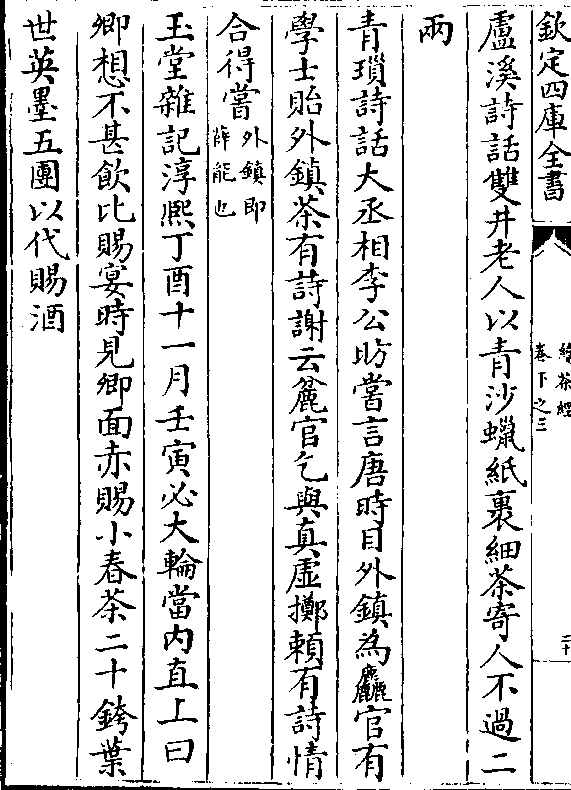 欽定四庫全書
續茶經
卷下之三
二十
盧溪詩話雙井老人以青沙蠟紙裹細茶寄人不過二
兩
青瑣詩話大丞相李公昉嘗言唐時目外鎮為麤官有
學士貽外鎮茶有詩謝云麄官乞與真虛擲頼有詩情
合得嘗外鎮即
薛能也
玉堂雜記淳熙丁酉十一月壬寅必大輪當内直上曰
卿想不甚飲比賜宴時見卿面赤賜小春茶二十銙葉
世英墨五團以代賜酒